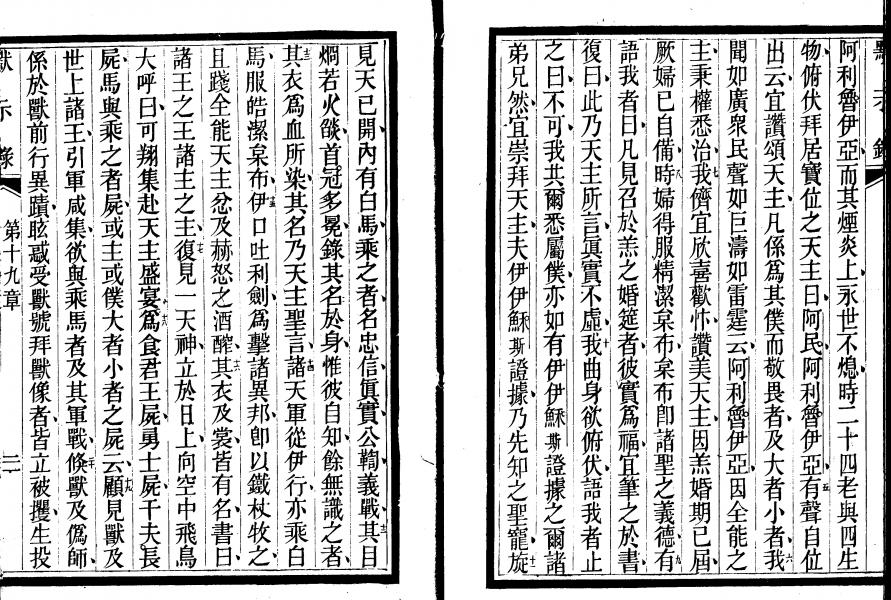 阿利魯伊亞而其煙炎上永世不熄時二十四老與四生
物俯伏拜居寶位之天主曰阿民阿利魯伊亞五有聲自位
出云宜讚頌天主凡係爲其僕而敬畏者及大者小者六我
聞如廣衆民聲如巨濤如雷霆云阿利魯伊亞因全能之
主秉權悉治七我儕宜欣喜歡忭讚美天主因羔婚期已屆
厥婦已自備八時婦得服精潔枲布枲布卽諸聖之義德九有
語我者曰凡見召於羔之婚筵者彼實爲福宜筆之於書
復曰此乃天主所言眞實不虛十我曲身欲俯伏語我者止
之曰不可我共爾悉屬僕亦如有伊伊穌斯證據之爾諸
弟兄然宜崇拜天主夫伊伊穌斯證據乃先知之聖寵十一旋
見天已開內有白馬乘之者名忠信眞實公鞫義戰十二其目
燗若火燄首冠多冕錄其名於身惟彼自知餘無識之者
十三其衣爲血所染其名乃天主聖言十四諸天軍從伊行亦乘白
馬服皓潔枲布十五伊口吐利劍爲擊諸異邦卽以鐵杖牧之
且踐全能天主忿及赫怒之酒醡十六其衣及裳皆有名書曰
諸王之王諸主之主十七復見一天神立於日上向空中飛鳥
大呼曰可翔集赴天主盛宴十八爲食君王屍勇士屍千夫長
屍馬與乘之者屍或主或僕大者小者之屍云十九顧見獸及
世上諸王引軍咸集欲與乘馬者及其軍戰二十倏獸及僞師
係於獸前行異蹟眩惑受獸號拜獸像者皆立被攫生投
默示錄
第十九章
二